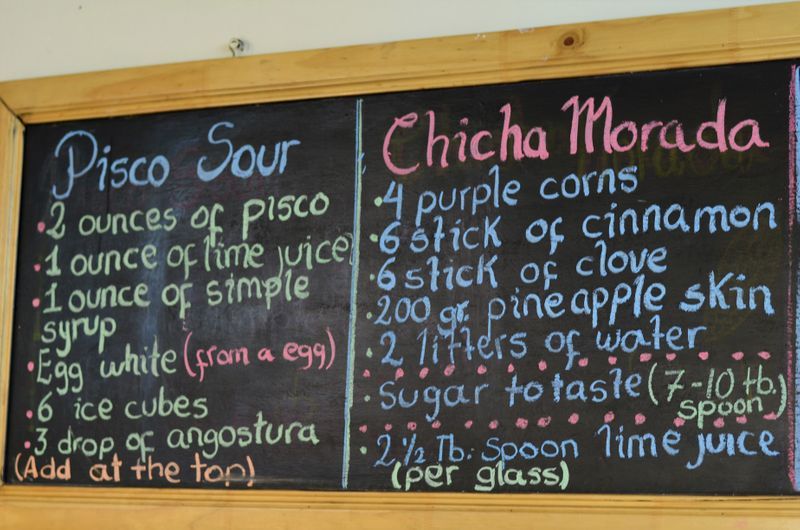 Pisco Sour
• 2 ounces of pisco
• 1 ounce of lime juice
• 1 ounce of simple
syrup
• Egg white (from a egg)
• 6 ice cubes
• 3 drop of angostura
(Add at the top)
Chicha Morada
• 4 purple corns
• 6 stick of cinnamon
• 6 stick of clove
• 200 gr. pineapple skin
• 2 litters of water
• Sugar to taste (7-10 tb.
spoon)
• 2 1/2 Tb. Spoon lime juice
(per glass)